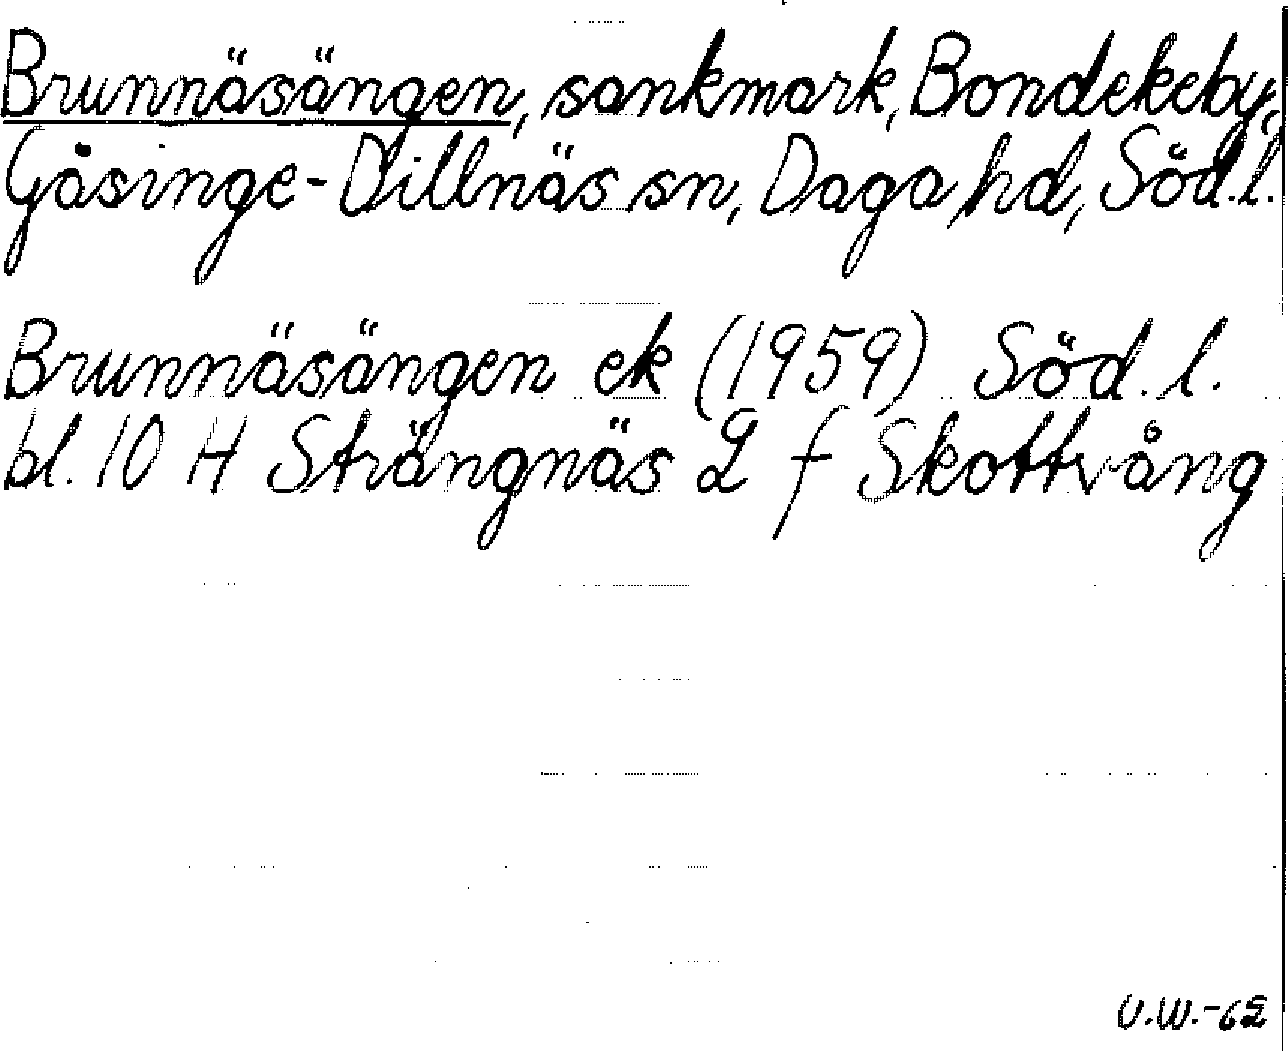 Brunnäsängen, sankmark, Bondekeby,
Gåsinge-Dillnäs sn, Daga hd, Söd.l.
Brunnäsängen ek (1959) Söd. l.
bl. 10 H Strängnäs 2 f Skottvång
U.W.-62